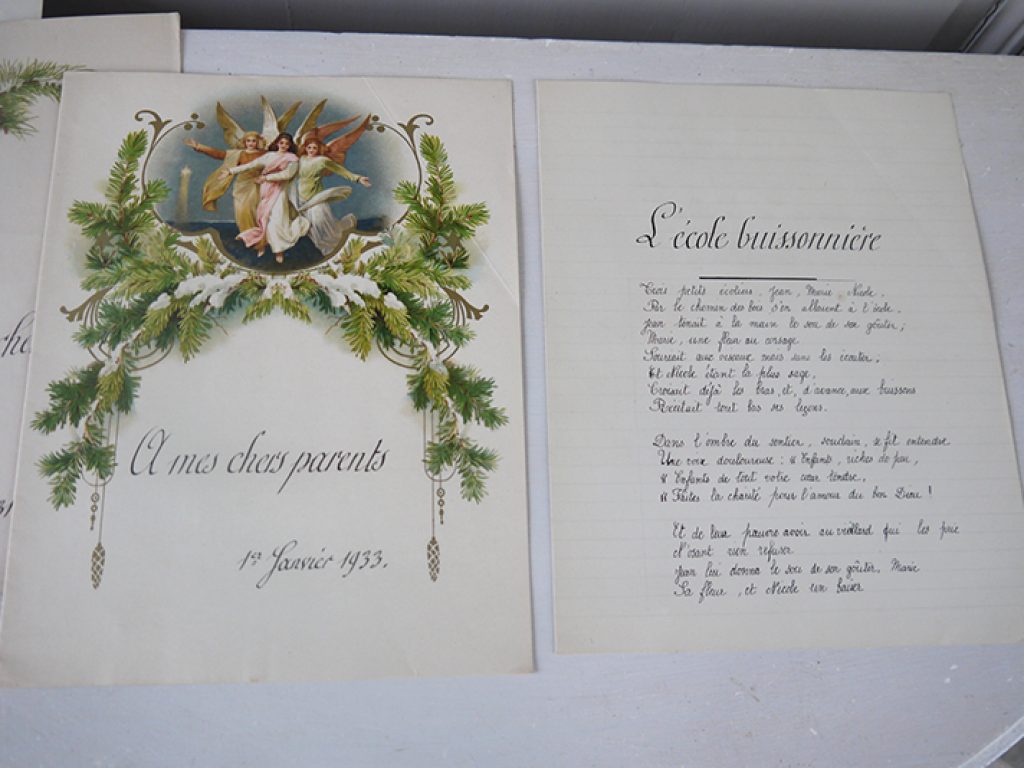 A mes chers parents
1er Janvier 1933.
L'école buissonnière
Trois petits écoliers, Jean, Marie, Nicole,
Par le chemin des bois s'en allaient à l'école.
Jean tenait à la main le sou de son goûter;
Marie, une fleur au corsage
Souriait aux oiseaux mais sans les écouter;
Et Nicole étant la plus sage,
Croisait déjà les bras, et, d'avance, aux buissons
Récitait tout bas ses leçons.
Dans l'ombre du sentier, soudain, se fit entendre
Une voix douloureuse : " Enfants, riches de peu,
" Enfants de tout votre cœur tendre,
" Faites la charité pour l'amour du bon Dieu !
Et de leur pauvre avoir au vieillard qui les prie
N'osant rien refuser
Jean lui donna le sou de son goûter, Marie
Sa fleur, et Nicole un baiser